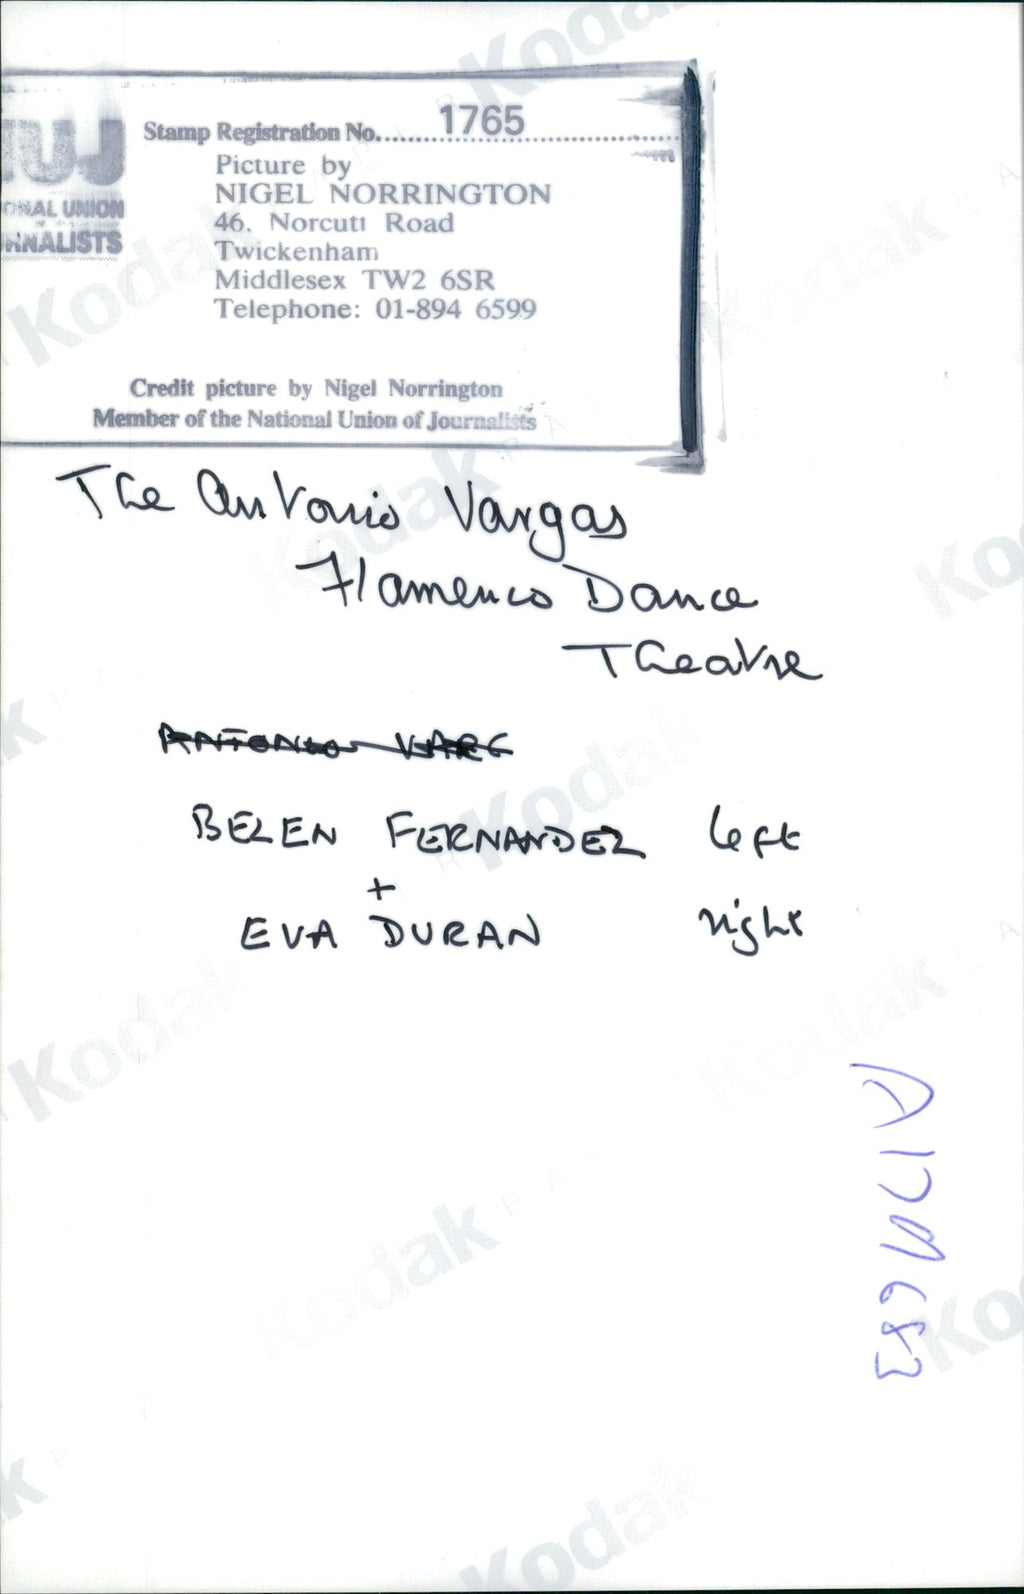 Kodak
Stamp Registration No. 1765
Picture by
NIGEL NORRINGTON
46. Norcutt Road
Twickenham
Middlesex TW2 6SR
Telephone: 01-894 6599
UJ
ONAL UNION
RNALISTS
Credit picture by Nigel Norrington
Member of the National Union of Journalists
The Antonio Vargas
Flamenco Dance
Theatre
ANTONIO VARG
BELEN FERNANDEZ left
+
EVA DURAN right
Kodak
Kodak
Kodak
Kodak
Kodak
Kodak